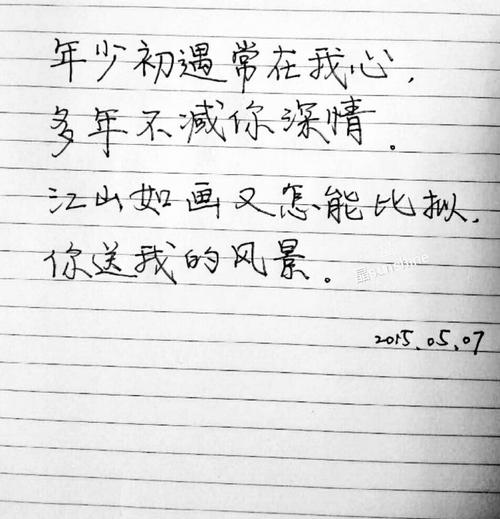 年少初遇常在我心,
多年不减你深情.
江山如画又怎能比拟.
你送我的风景.
晶sunshine
2015.05.07